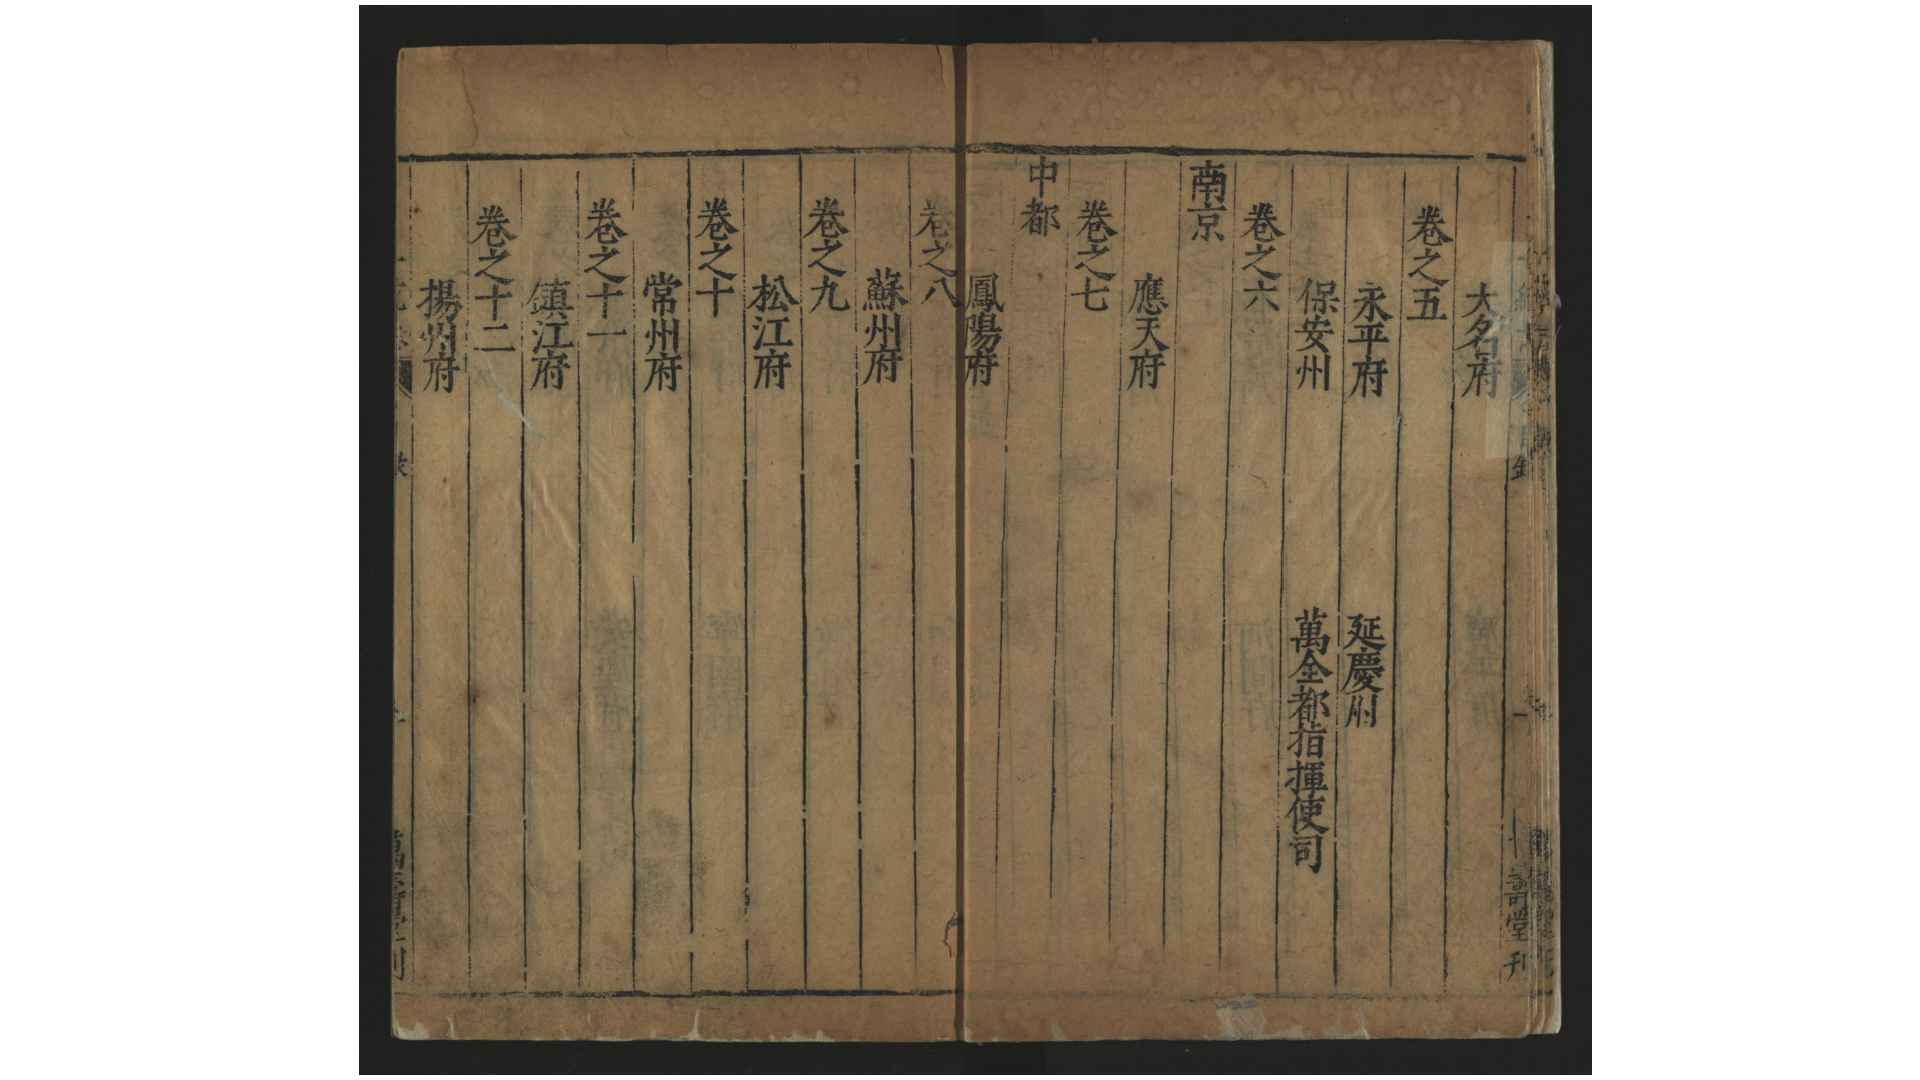 大名府
卷之五
永平府 延慶州
保安州 萬全都指揮使司
卷之六
南京
應天府
卷之七
中都
鳳陽府
卷之八
蘇州府
卷之九
松江府
卷之十
常州府
卷之十一
鎮江府
卷之十二
揚州府